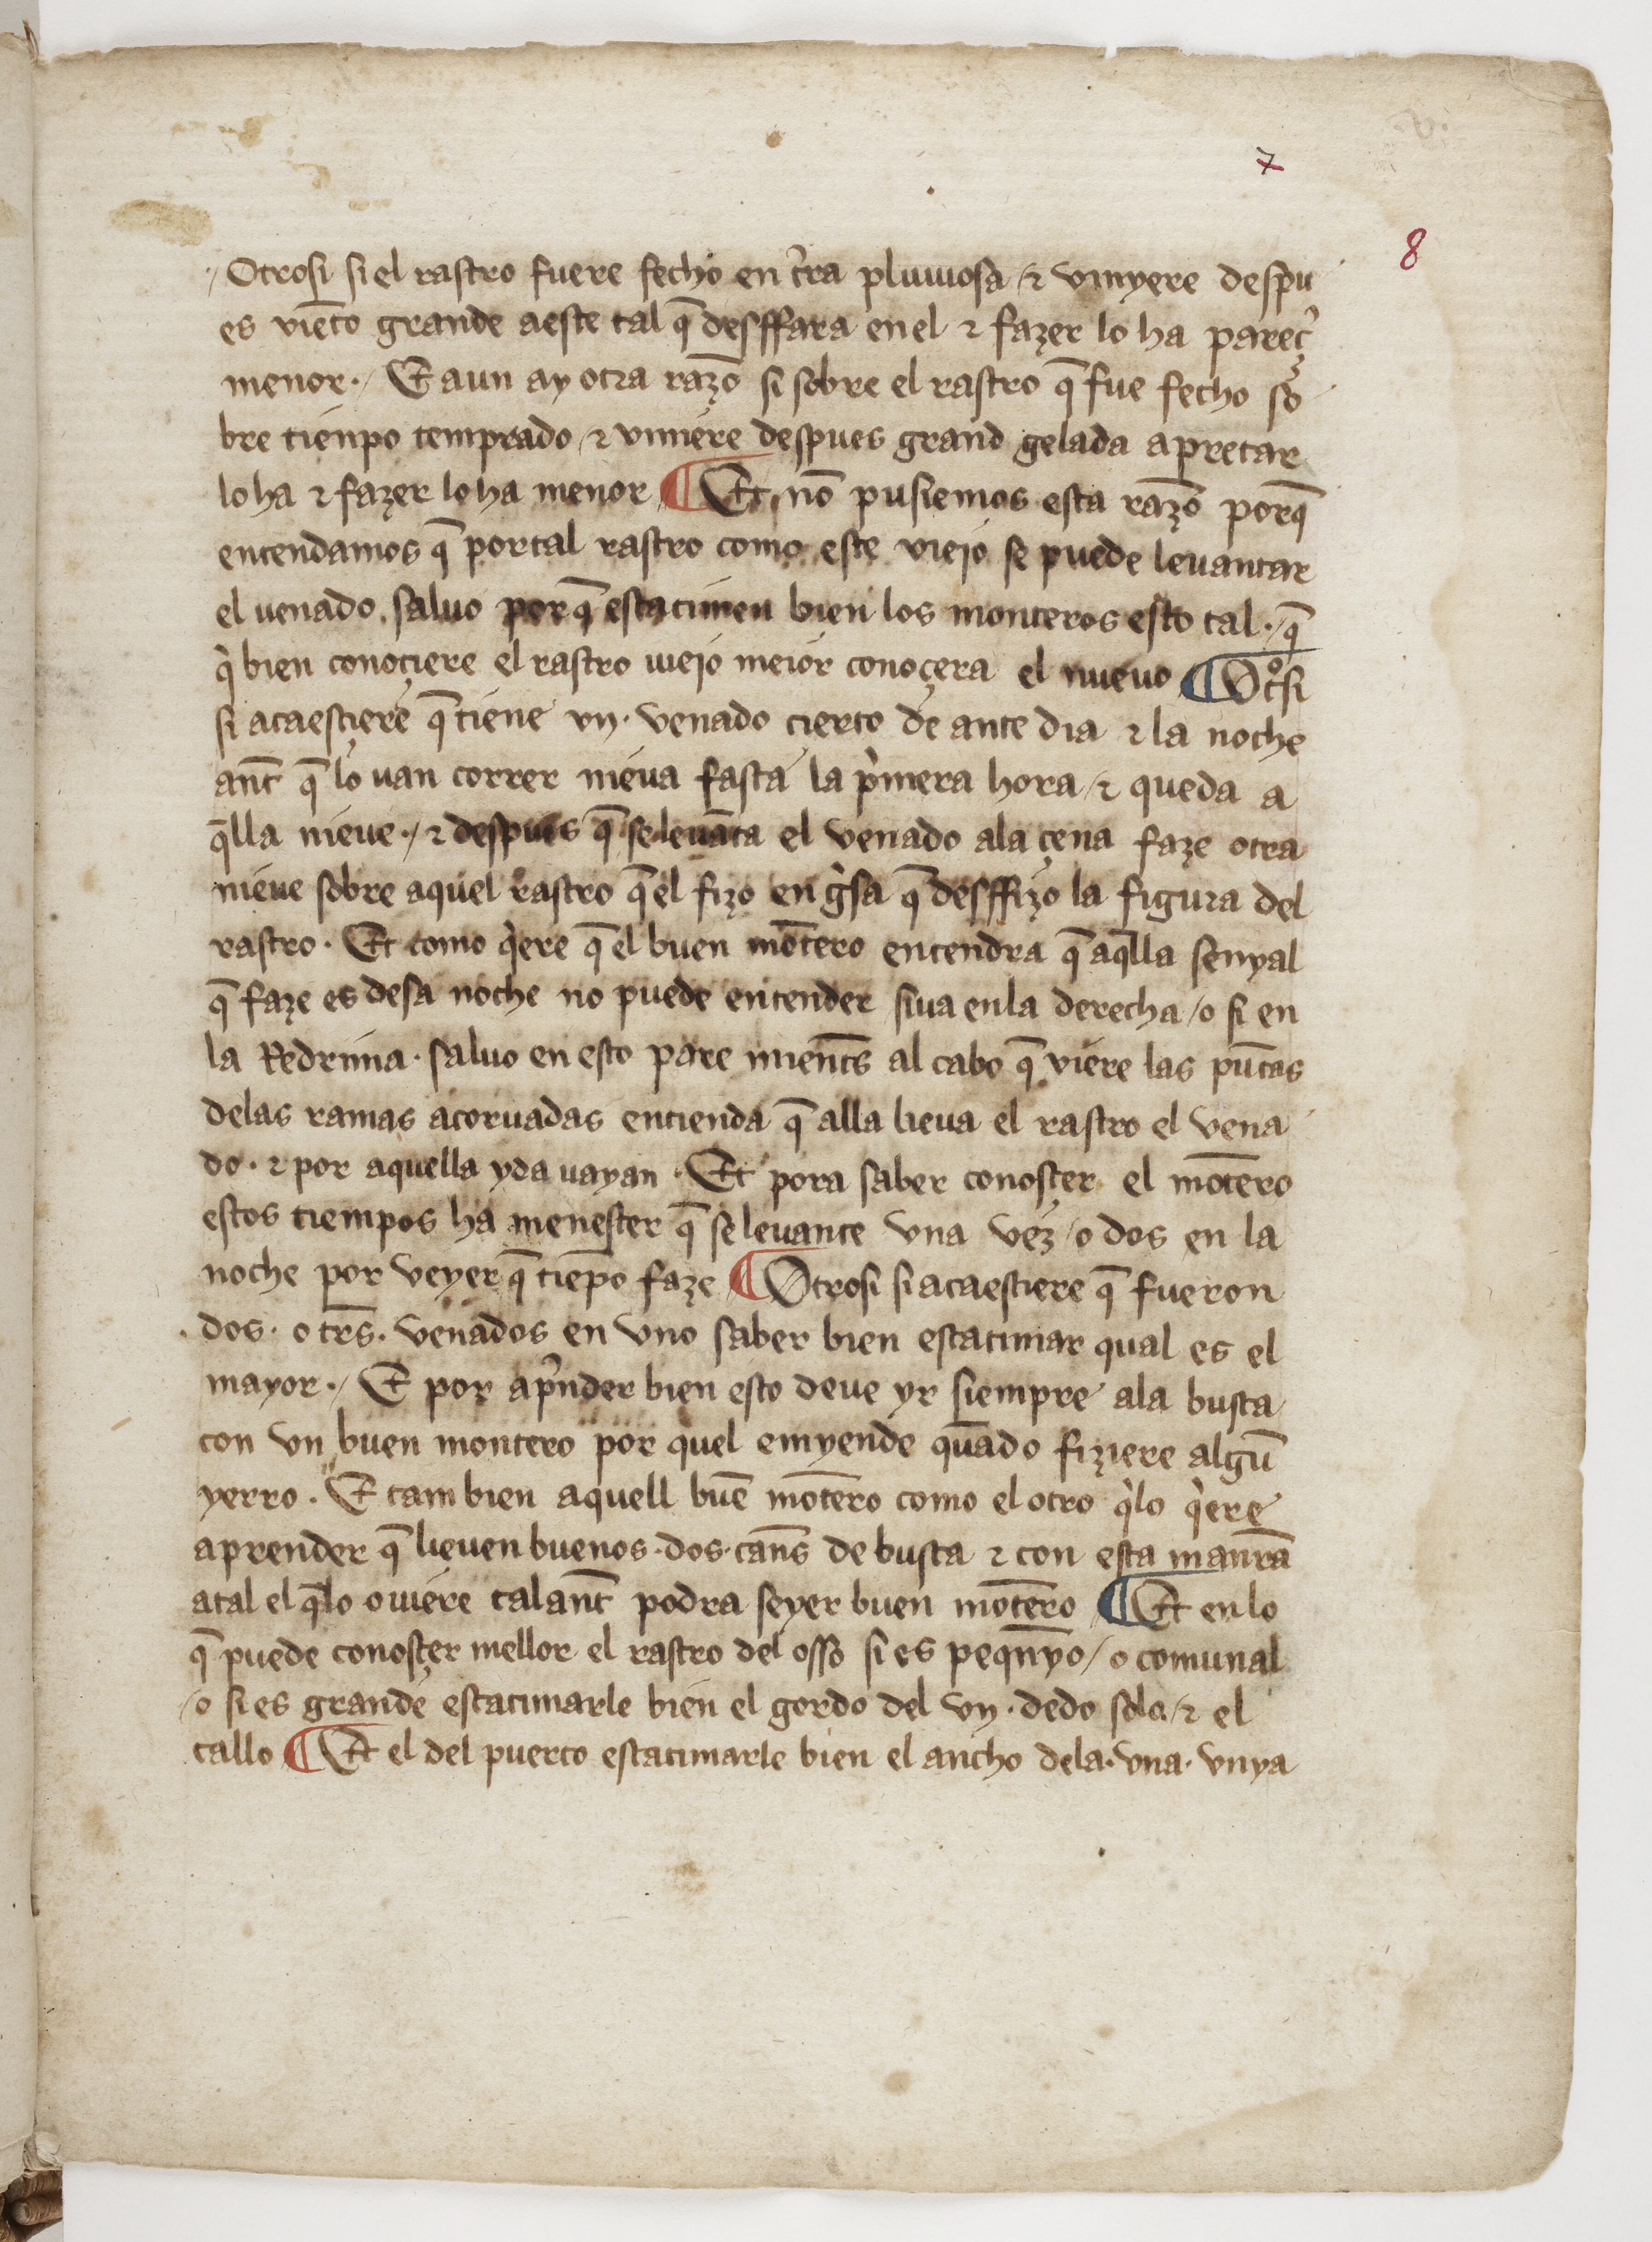 7
8
Otrosi si el rastro fuere fecho en tr̃a pluuiosa / ⁊ vinyere despu
es viẽto grande aeste tal q̃ desffara enel ⁊ fazer lo ha pareçʼ
menor ·/ Et aun ay otra razõ si sobre el rastro q̃ fue fecho so
bre tienpo temprado / ⁊ viniere despues grand gelada apretar
loha ⁊ fazer loha menor ¶ Et nõ pusiemos esta razõ porq̃
entendamos q̃ portal rastro como este viejo se puede leuantar
el uenado . saluo por q̃ estaciinen bien los monteros esto tal ·/ q̃
qͥ bien conociere el rastro uiejo meior conoçera el nueuo ¶ Otͦsi
si acaesciere q̃ tiene vn · venado cierto de ante dia ⁊ la noche
ant̃ q̃ lo uan correr nieua fasta la pͥmera hora / ⁊ queda a
q̃lla nieue ·/ ⁊ despues q̃ se leuãta el venado ala çena faze otra
nieue sobre aquel rastro q̃ el fizo en gͥsa q̃ desffizo la figura del
rastro · Et como qͥere q̃ el buen mõtero entendra q̃ aq̃lla senyal
q̃ faze es desa noche no puede entender siua enla derecha / o si en
la Redruna · saluo en esto pare mient̃s al cabo q̃ viere las pũtas
delas ramas acoruadas entienda q̃ alla lieua el rastro el vena
do · ⁊ por aquella yda uayan · Et pora saber conosçer el mõtero
estos tiempos ha menester q̃ se leuante vna vez / o dos en la
noche por veyer q̃ tiẽpo faze ¶ Otrosi si acaesciere q̃ fueron
dos · o tr̃s · venados en vno saber bien estacimar qual es el
mayor ·/ Et por apͥnder bien esto deue yr siempre ala busca
con vn buen montero por quel emyende quãdo fiziere algũ
yerro · Et tam bien aquell buẽ mõtero como el otro qͥlo qͥere
aprender q̃ lieuen buenos · dos · cañs de busca ⁊ con esta manr̃a
atal el q̃lo ouiere talant̃ podra seyer buen mõtero ¶ Et enlo
q̃ puede conosçer mellor el rastro del osso si es peq̃nyo / o comunal
/ o si es grande estacimarle bien el gordo del vn · dedo solo / ⁊ el
callo ¶ Et el del puerco estacimarle bien el ancho dela · vna · vnya